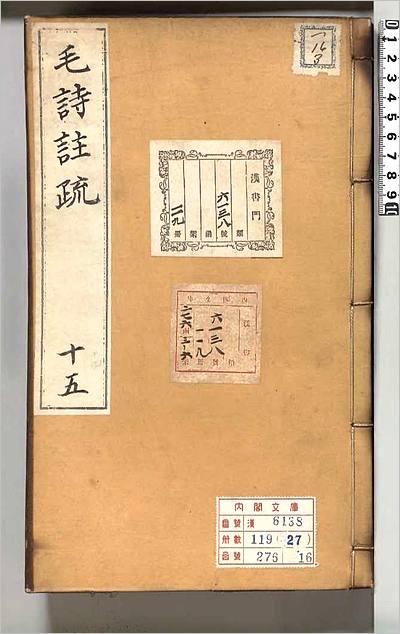 毛詩註疏
十五
漢書門
類
六一三八號
函
架
一一九冊
六一三八
一一九
內閣文庫
番號 漢 6138
冊數 119 (27)
函號 276 16
0 1 2 3 4 5 6 7 8 9 10